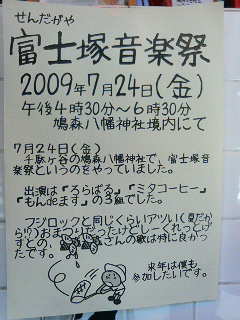 せんだがや
富士塚音楽祭
2009年7月24日(金)
午後4時30分〜6時30分
鳩森八幡神社境内にて
7月24日(金)
千駄ヶ谷の鳩森八幡神社で、富士塚音
楽祭というのをやっていました。
出演は『ろらぱる』『ミタコーヒー』
『もんdeます』の3組でした。
フジロックと同じくらいアツい(夏だか
ら!?)おまつりだったけどしーくれっとげ
すとの、さんの歌は特に良かっ
たです。
来年は僕も
参加したいです。